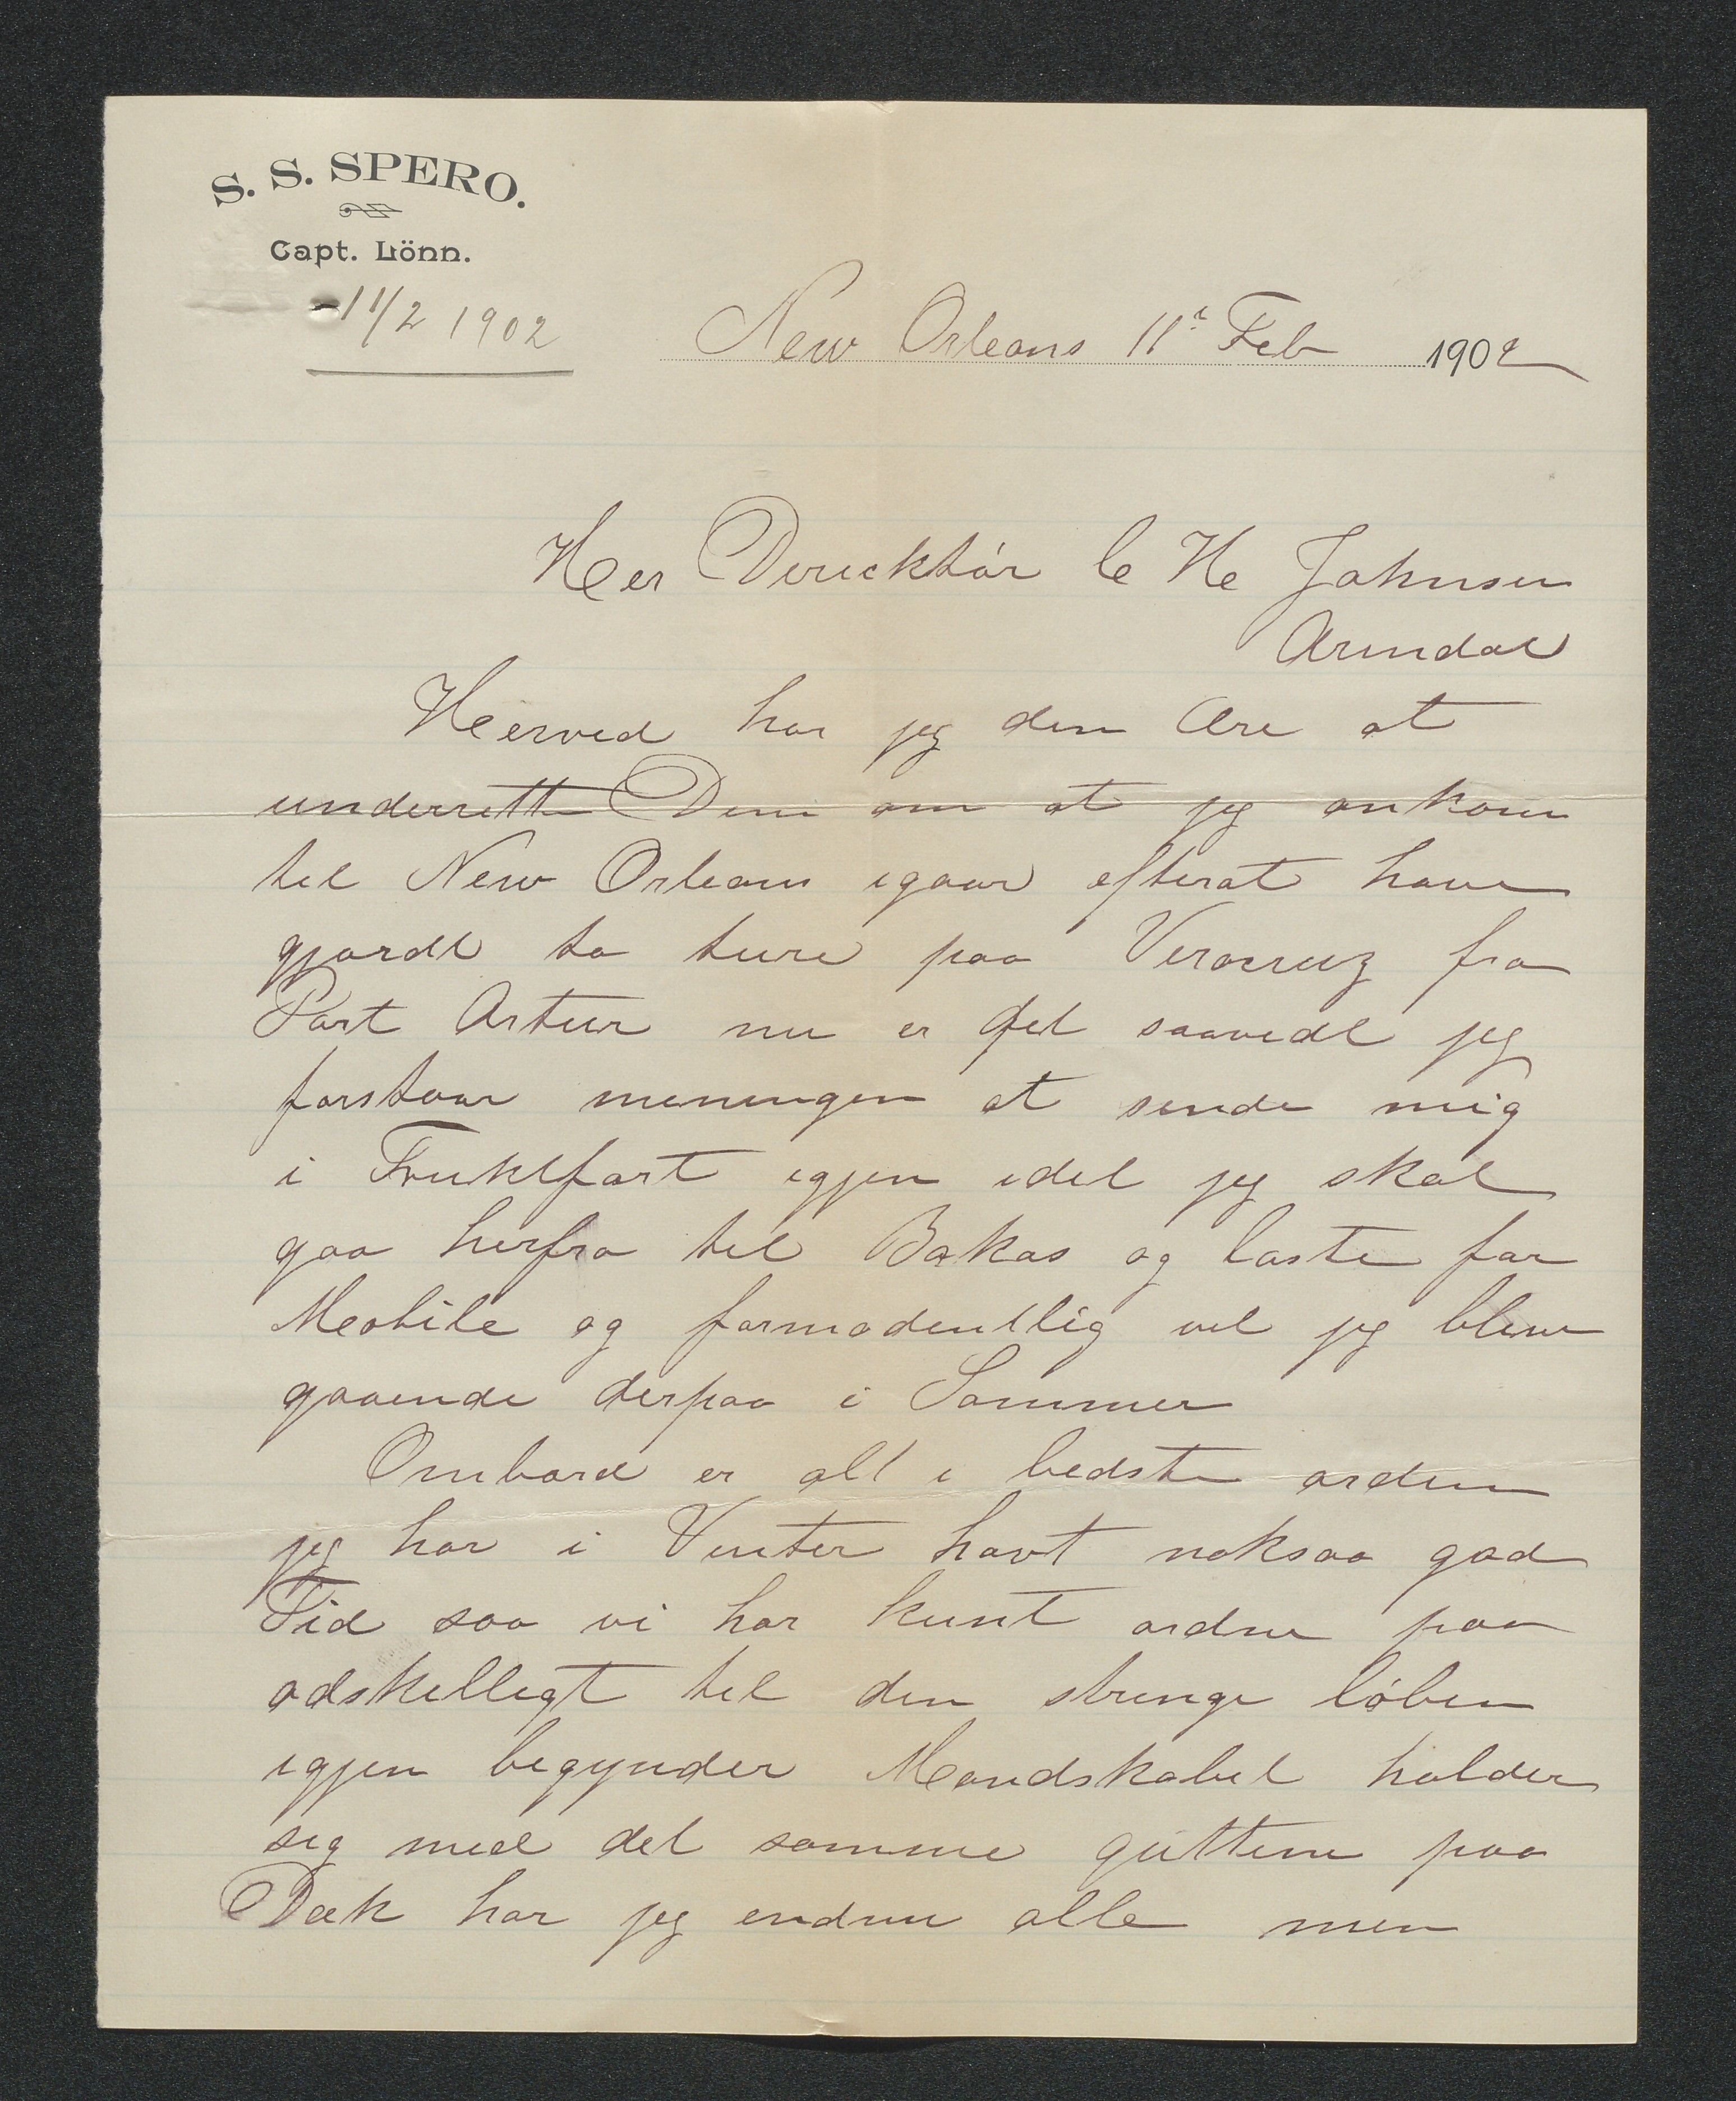 S. S. SPERO.
Capt. Lönn.
-11/2 1902
New Orleans 11t Feb 1902
Her Direcktör C H Johnsen
Arendal
Herved har jeg den Ære at
underrette Dem om at jeg ankom
til New Orleans igaar efterat have
gjordt to ture paa Veracruz fra
Port Artur nu er det saavidt jeg
forstaar meningen at sende mig
i Fruktfart igjen idet jeg skal
gaa herfra til Bokas og laste for
Mobile og formodentlig vil jeg blive
gaaende derpaa i Sommer
Ombord er alt i bedste orden
jeg har i Vinter havt noksaa god
Tid saa vi har kunt ordne paa
adskelligt til den strenge löben
igjen begynder Mandskabet holder
sig med det samme guttene paa
Dæk har jeg endnu alle men